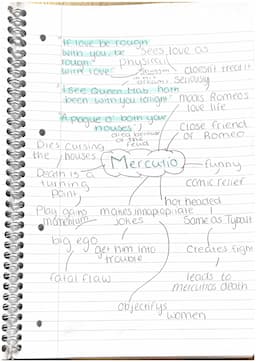 "If love be rough
with you, be
rough
with love"
sees love as
physical
doesn't treat it
seriously
"I see Queen Mab hath
been with you tonight"
mocks Romeo's
love life
"A plague o' both your
houses"
died because
of the
feud
close friend
of Romeo
Dies cursing
the houses
Mercutio
funny
comic relief
Death is a
turning
point
hot headed
Play gains
momentum
makes innapropriate
jokes
Same as Tybalt
big ego
get him into
trouble
creates fight
fatal flaw
leads to
mercutios death
objectifys
women